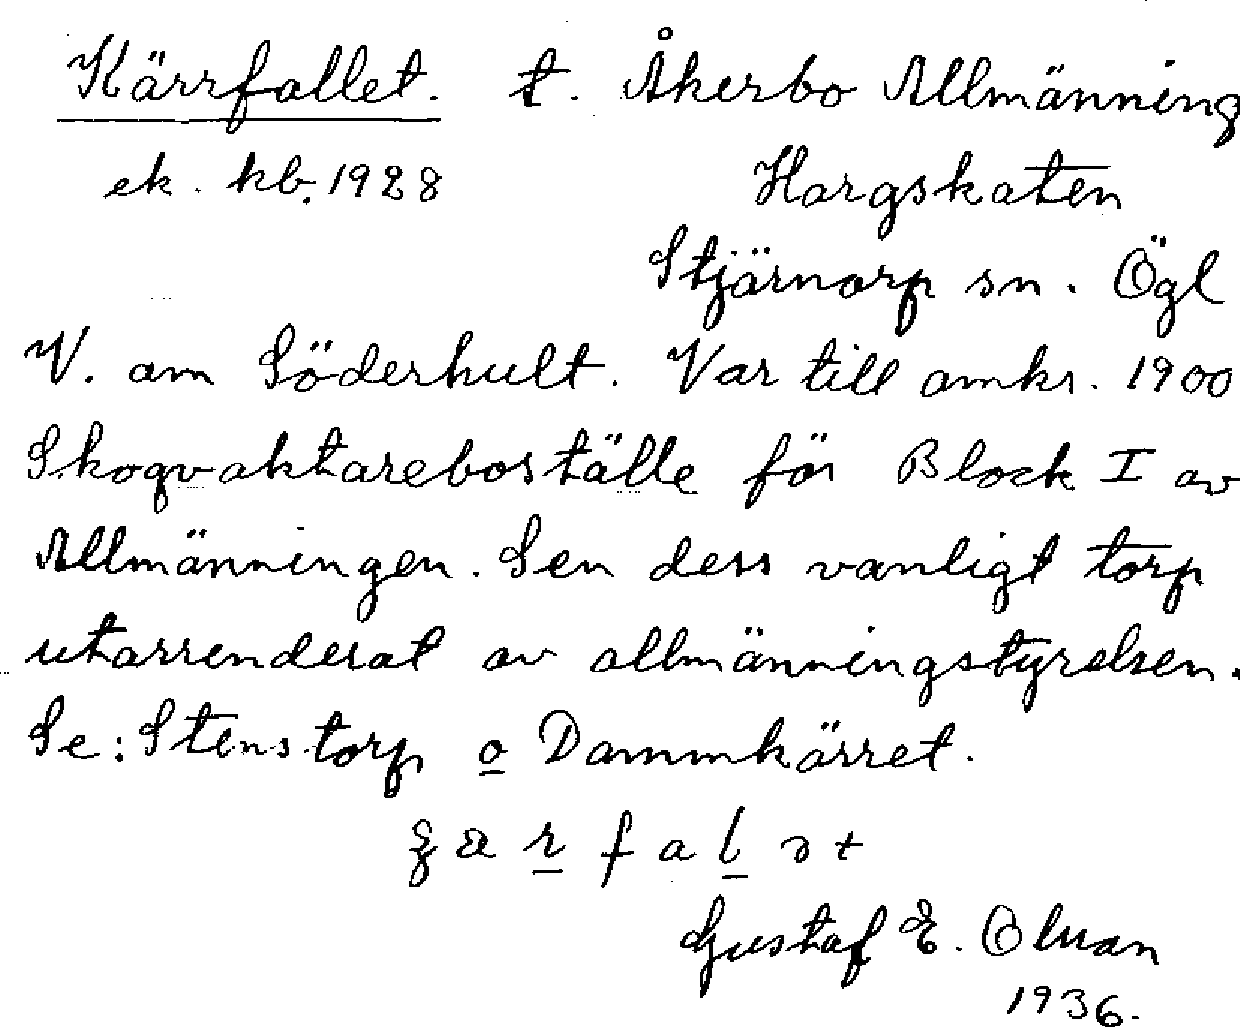 Kärrfallet. t. Åkerbo Allmänning
ek. kb. 1928 Hargskaten
Stjärnorp sn. Ögl
V. om Söderhult. Var till omkr. 1900
Skogvaktareboställe för Block I av
Allmänningen. Sen dess vanligt torp
utarrenderat av allmänningstyrelsen.
Se: Stenstorp o Dammkärret.
f a l ə t
Gustaf E.
1936.